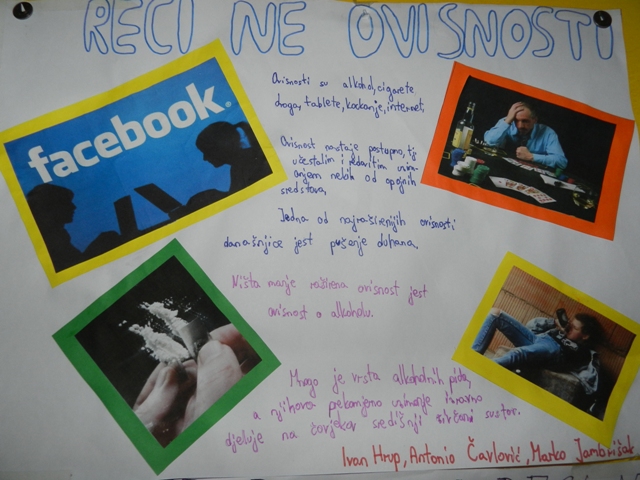 RECI NE OVISNOSTI
facebook.
Ovisnosti su alkohol, cigarete
droga, tablete, kockanje, internet,
Ovisnost nastaje postupno, tj
učestalim i redovitim uzim-
anjem nekih od opojnih
sredstava,
Jedna od najraširenijih ovisnosti
današnjice jest pušenje duhana.
Ništa manje raširena ovisnost jest
ovisnost o alkoholu.
Mnogo je vrsta alkoholnih pića,
a njihova prekomjerno uzimanje
djeluje na čovjekov središnji živčani sustav.
Ivan Hrup, Antonio Čavlović, Marko Jambrišak